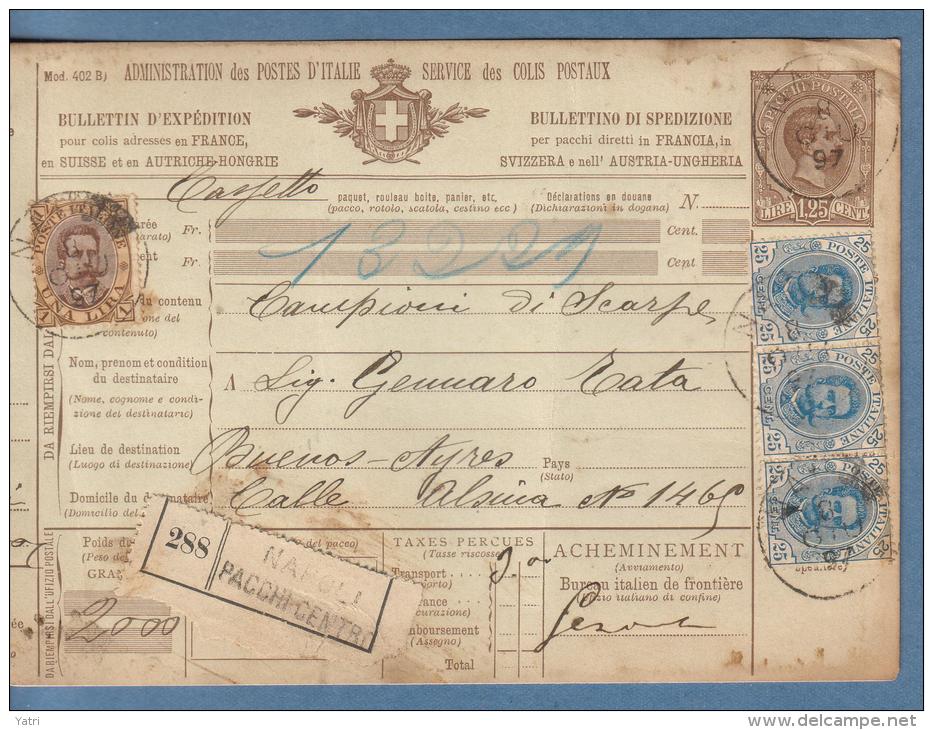 Mod. 402 B) ADMINISTRATION des POSTES D'ITALIE SERVICE des COLIS POSTAUX
BULLETTIN D'EXPÉDITION
pour colis adresses en FRANCE,
en SUISSE et en AUTRICHE-HONGRIE
BULLETTINO DI SPEDIZIONE
per pacchi diretti in FRANCIA, in
SVIZZERA e nell' AUSTRIA-UNGHERIA
PACCHI POSTALI
LIRE 1,25 CENT.
97
Cassetto
paquet, rouleau boite, panier, etc.
(pacco, rotolo, scatola, cestino ecc)
Déclarations en douane
(Dichiarazioni in dogana)
N.
Fr. Cent.
Fr. Cent
13229
POSTE ITALIANE
1 UNA LIRA 1
97
du contenu
contenuto)
Campioni di Scarpe
DA RIEMPIRSI DAL
Nom, prenom et condition
du destinataire
(Nome, cognome e condi-
zione del destinataric)
A Sig. Gennaro Tata
Lieu de destination
(Luogo di destinazione)
Buenos-Ayres
Pays
(Stato)
Domicile du destinataire
(Domicilio del
Calle Alsina No 1465
25 POSTE ITALIANE 25
25 POSTE ITALIANE 25
25 POSTE ITALIANE 25
DA RIEMPIRSI DALL'UFIZIO POSTALE
Poids d
(Peso de
GRA
2000
del pacco)
288
NAPOLI
PACCHI CENTRO
TAXES PERÇUES
(Tasse riscosse)
Transport
Total
(Assegno)
ACHEMINEMENT
(Avviamento)
Bureau italien de frontière
(Ufizio italiano di confine)
Genova
Yatri
http://www.delcampe.net